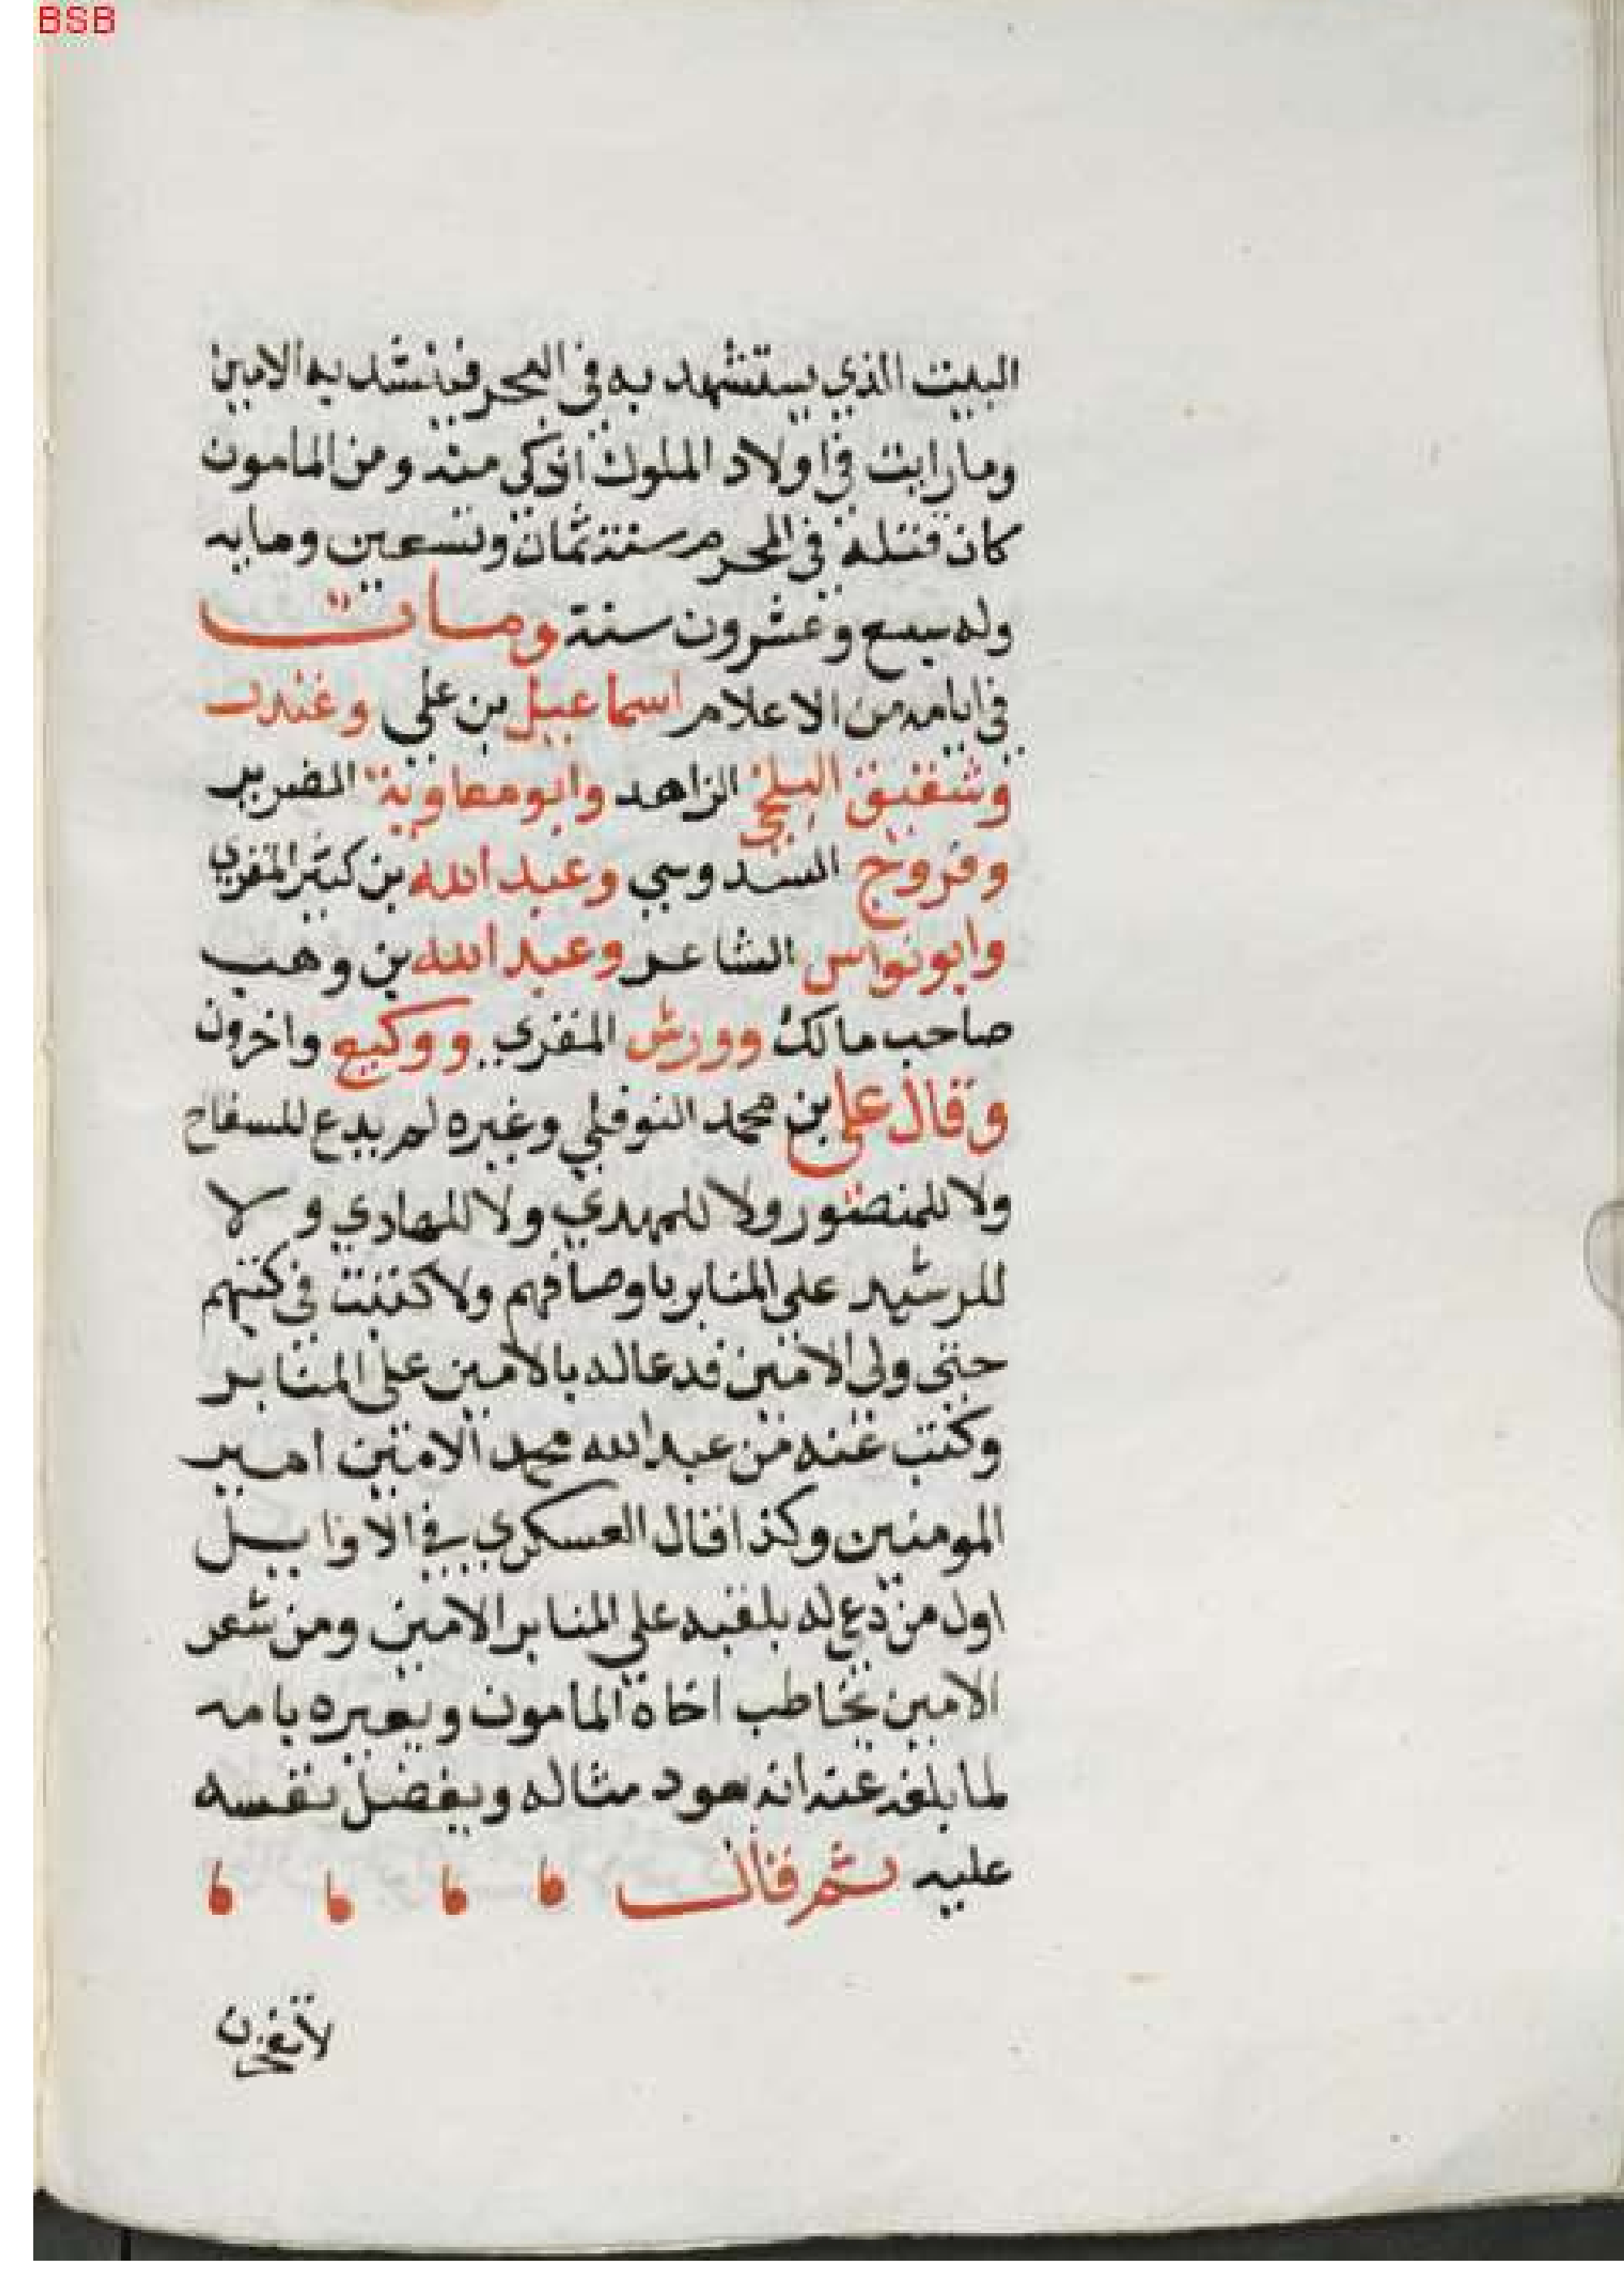 BSB
البيت الذي يستشهد به في البحر فينشد به الامين
وما رايت في اولاد الملوك اذكى منه ومن المامون
كان قتله في المحرم سنة ثمان وتسعين ومايه
وله سبع وعشرون سنة ومات
في ايامه من الاعلام اسماعيل بن علي وغندر
وشقيق البلخي الزاهد وابو معاوية الضرير
وفروج السدوسي وعبد الله بن كثير المقري
وابو نواس الشاعر وعبد الله بن وهب
صاحب مالك وورش المقري ووكيع واخرون
وقال علي بن محمد النوفلي وغيره لم يدع للسفاح
ولا للمنصور ولا للمهدي ولا للهادي ولا
للرشيد على المنابر باوصافهم ولا كتبت في كتبهم
حتى ولي الامين فدعا له بالامين على المنابر
وكتب عنه من عبد الله محمد الامين امير
المومنين وكذا قال العسكري في الاوايل
اول من دعي له بلقبه على المنابر الامين ومن شعر
الامين يخاطب اخاه المامون ويعيره بامه
لما بلغه عنه انه يعود مثاله ويفضل نفسه
عليه ثم قال
لا تفخرن